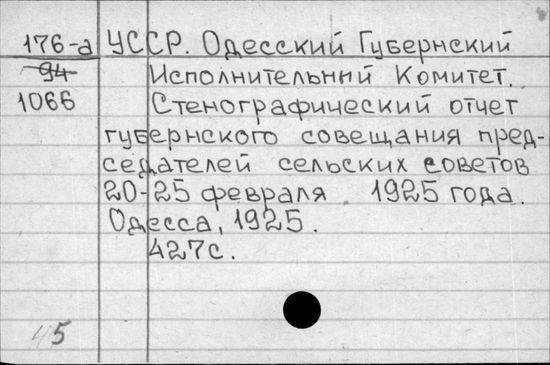 176-а УССР. Одесский Губернский
94 Исполнительный Комитет.
1066 Стенографический отчет
губернского совещания пред-
седателей сельских советов
20-25 февраля 1925 года.
Одесса, 1925.
427с.
45